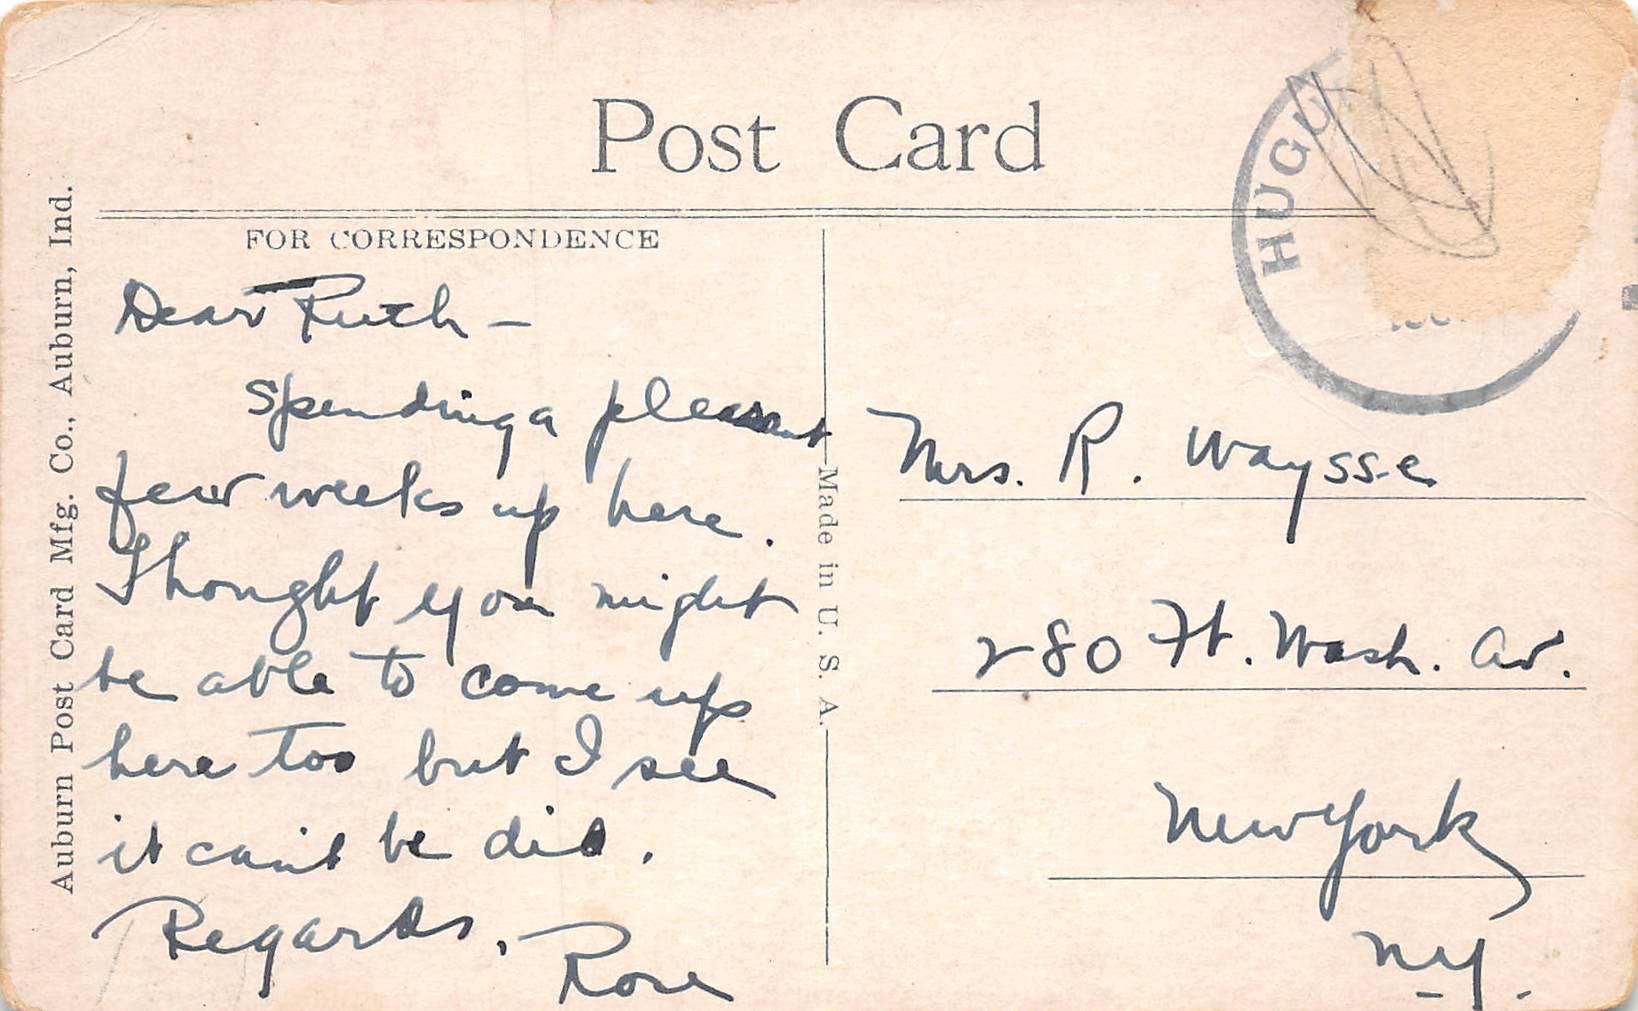 Post Card
FOR CORRESPONDENCE
Auburn Post Card Mfg. Co., Auburn, Ind.
Dear Ruth –
Spending a pleasant
few weeks up here.
Thought you might
be able to come up
here too but I see
it can't be did.
Regards,
Rose
Made in U. S. A.
HUGU
Mrs. R. Waysse
280 Ft. Wash. Av.
New York
N.Y.